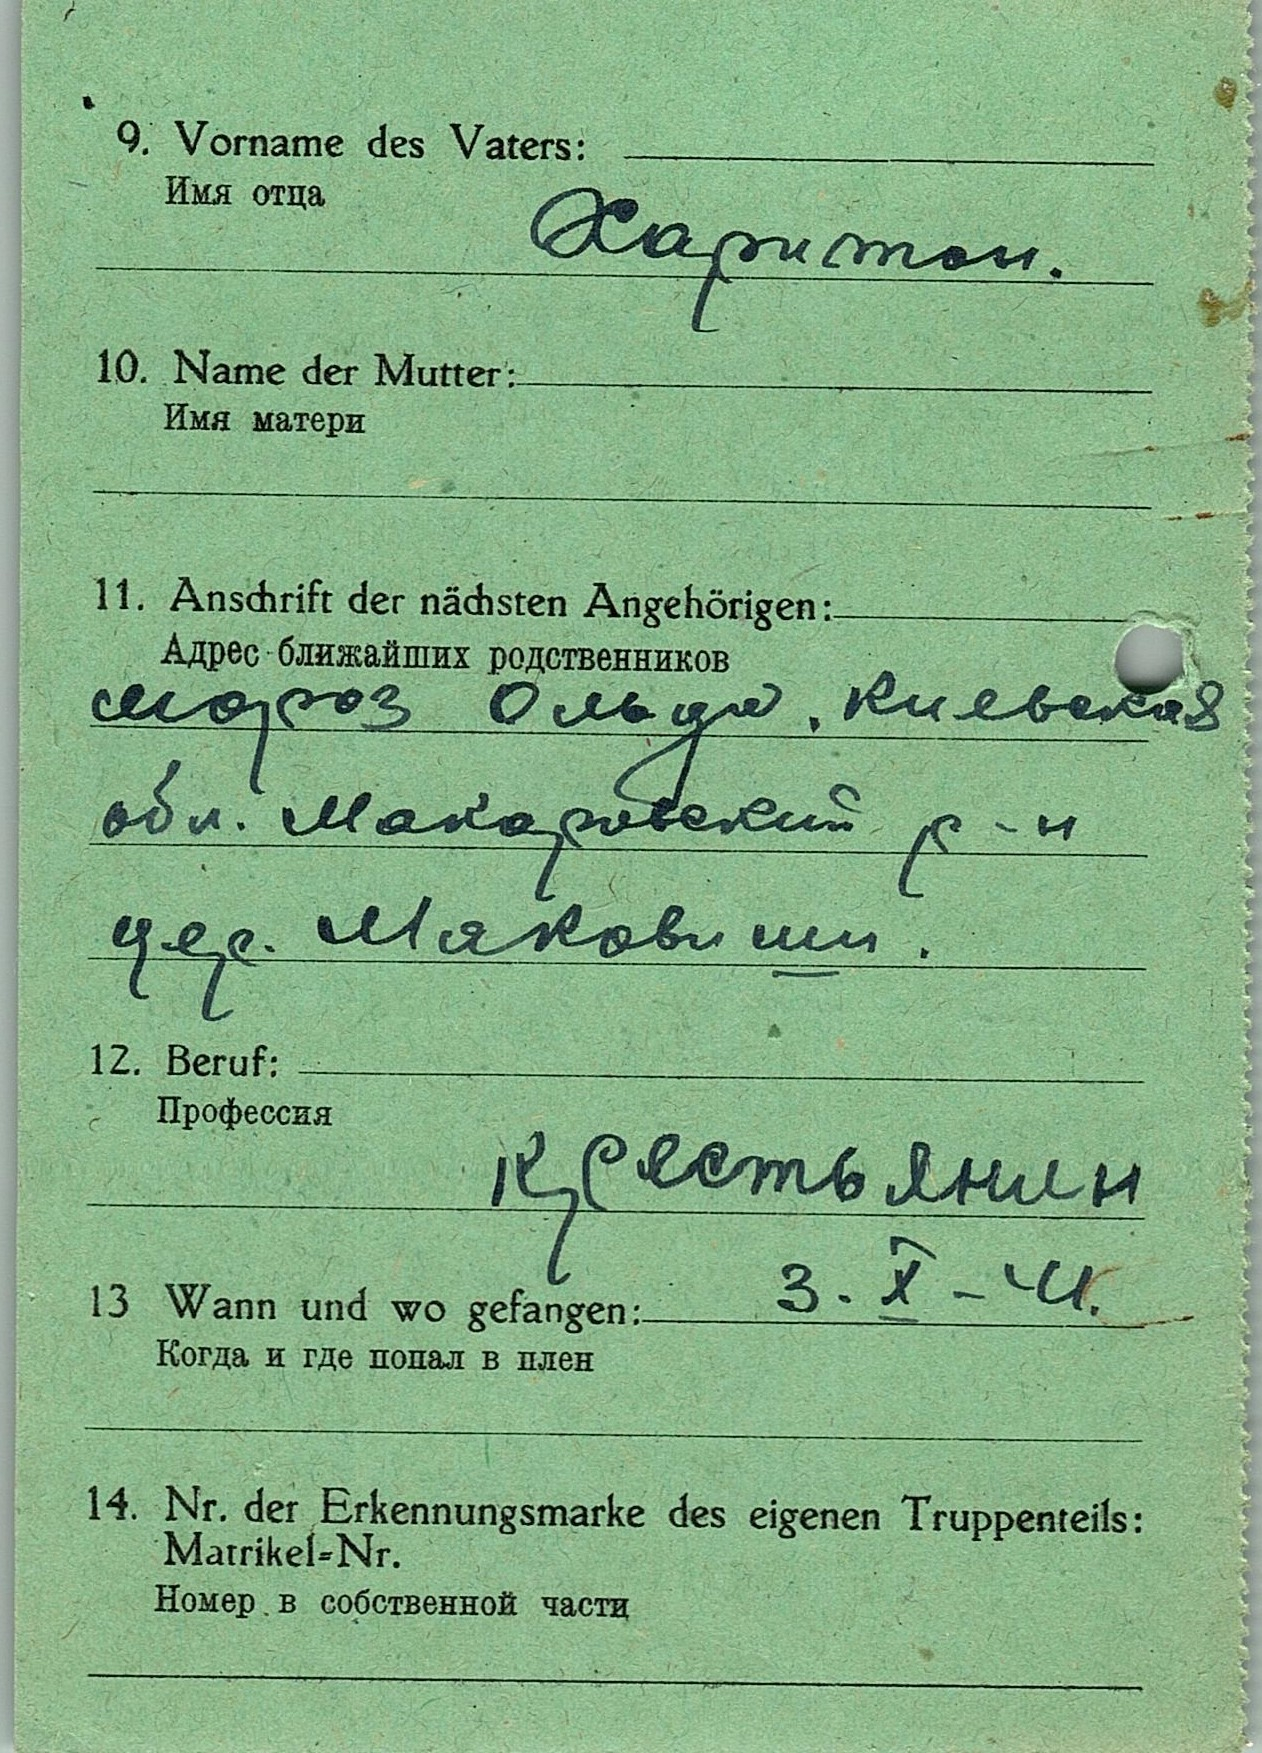 9. Vorname des Vaters:
Имя отца
Харитон.
10. Name der Mutter:
Имя матери
11. Anschrift der nächsten Angehörigen:
Адрес ближайших родственников
мороз Ольга. Киевская
обл. Макаровский р-н
дер. Маковищи.
12. Beruf:
Профессия
крестьянин
13 Wann und wo gefangen: 3. X - 41.
Когда и где попал в плен
14. Nr. der Erkennungsmarke des eigenen Truppenteils:
Matrikel=Nr.
Номер в собственной части